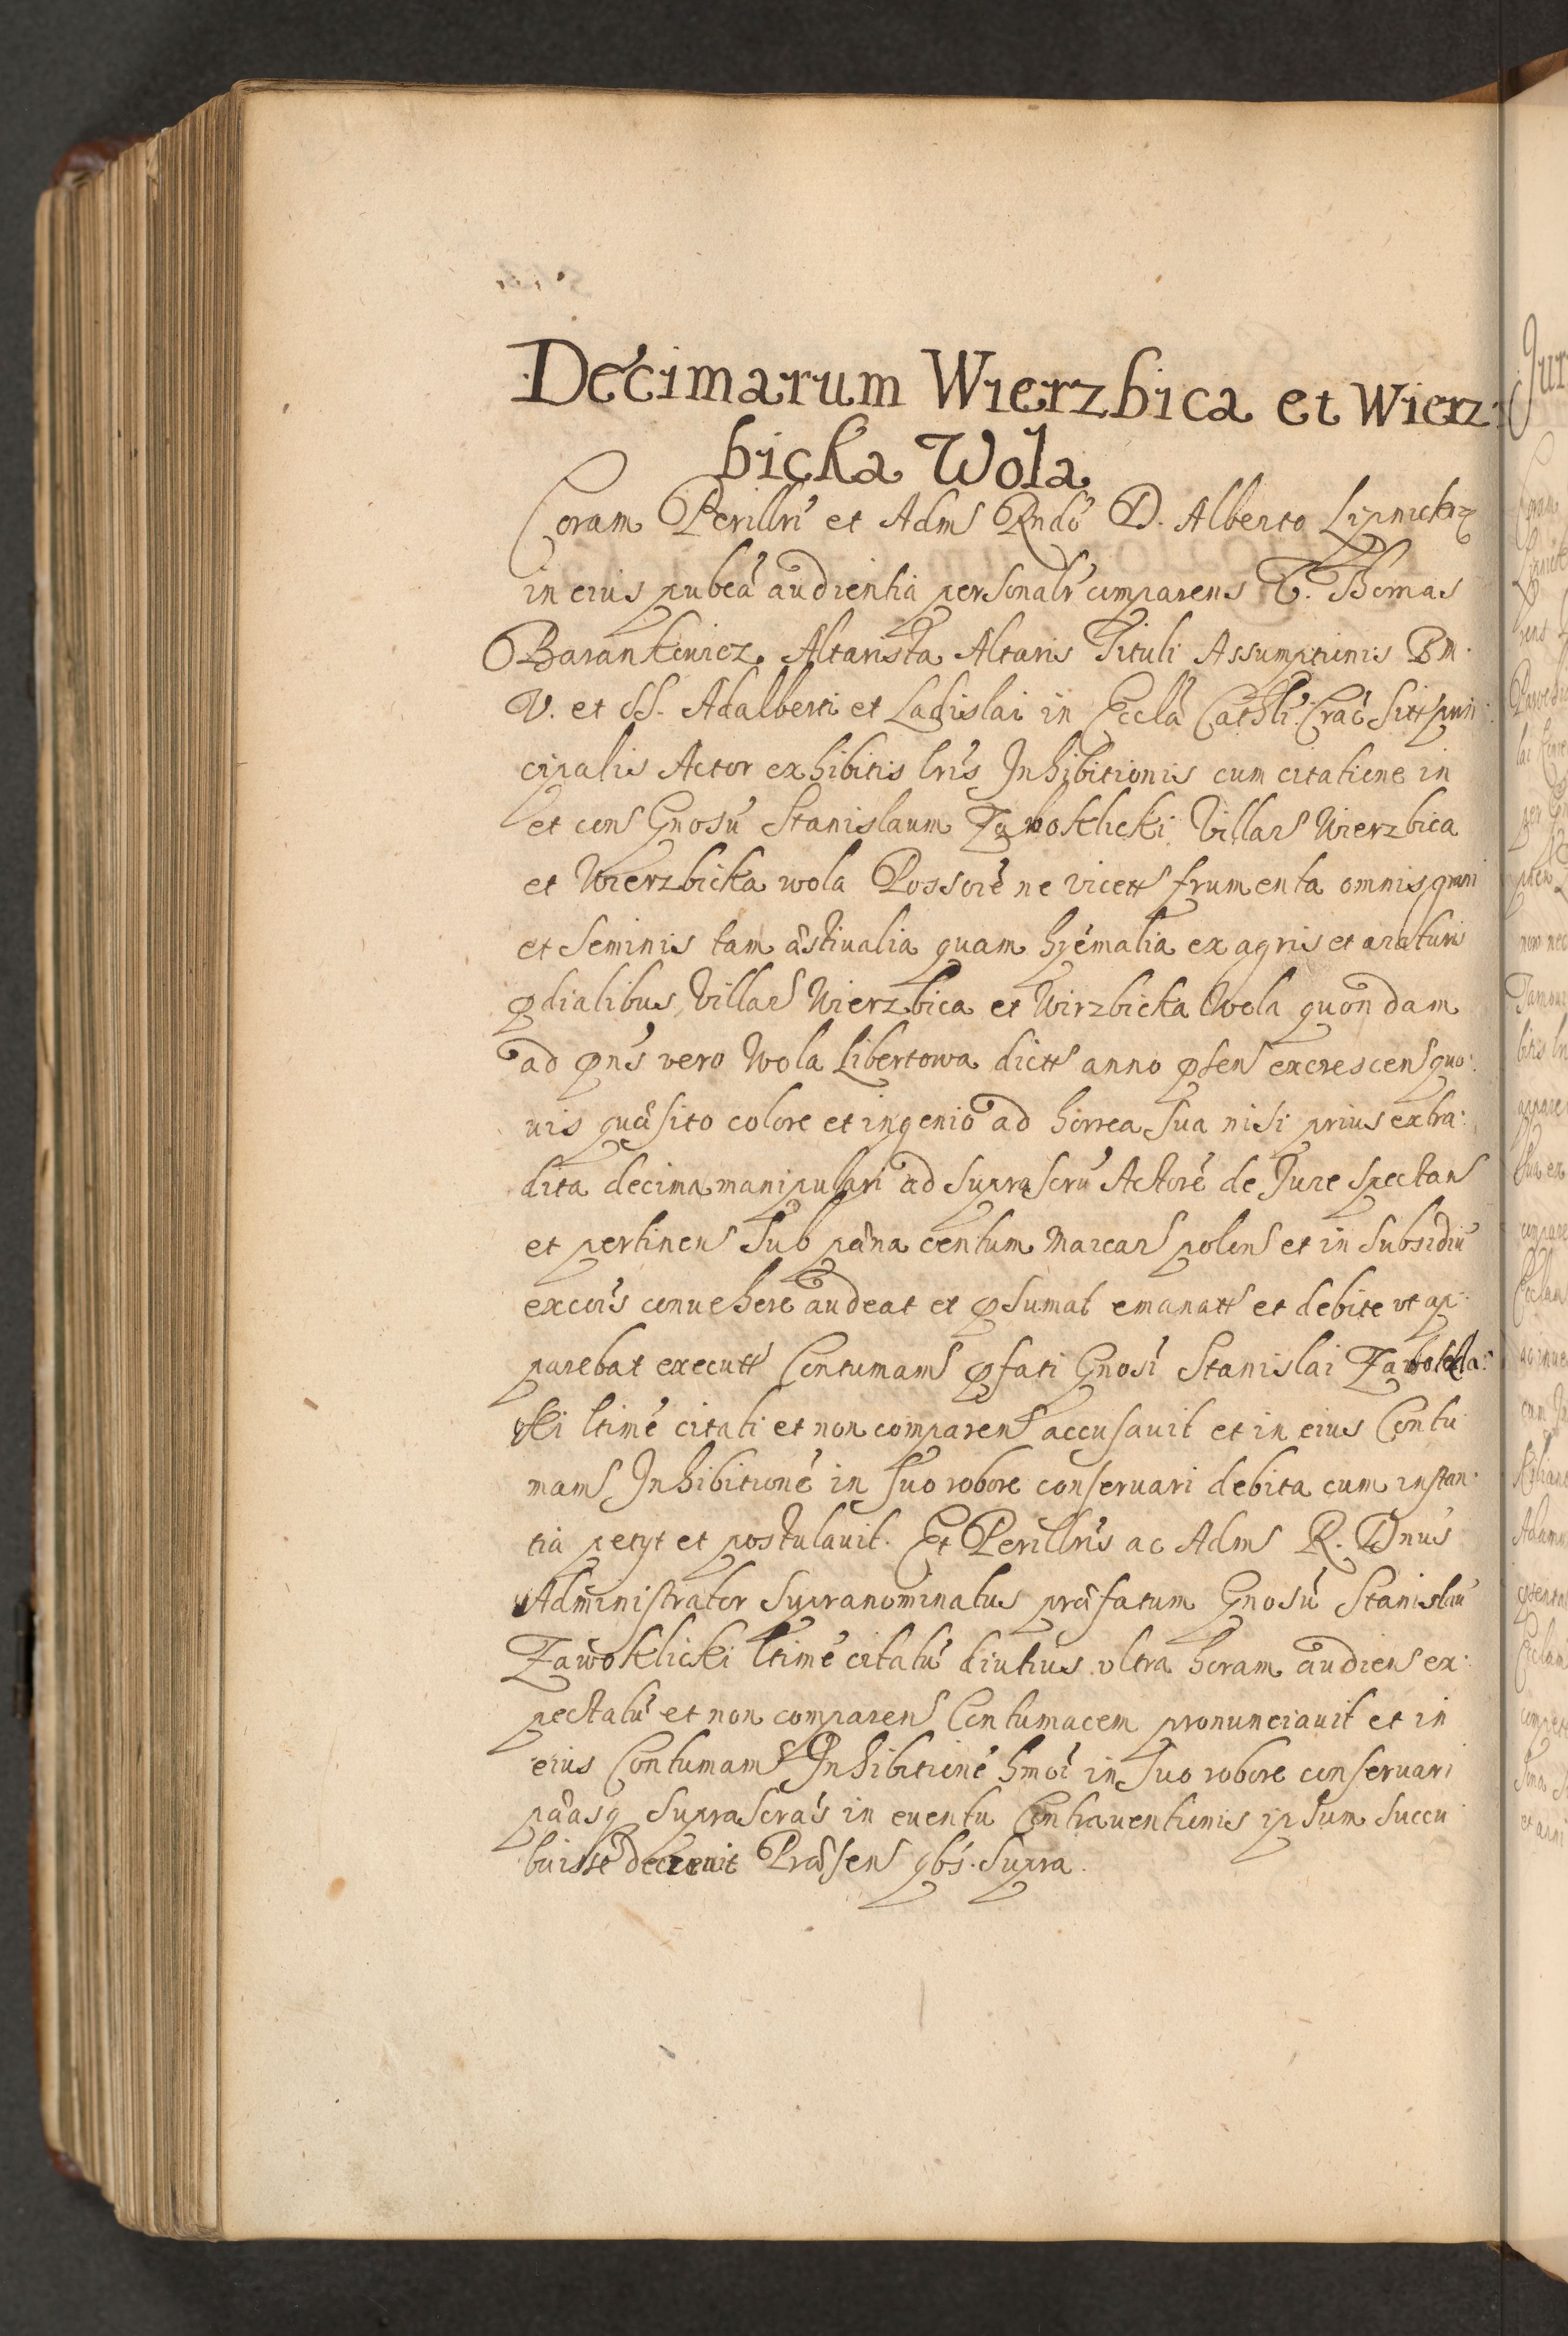 Decimarum Wierzbica et Wierz:
bicka Wola
Coram Perillri et Adm Rndo D. Alberto Lipnicki
in eius pubca audientia personalr comparens V. Thomas
Barankowicz Altarista Altaris Tituli Assumptionis BM.
V. et SS. Adalberti et Ladislai in Eccla Cathli. Crac prin:
cipalis Actor exhibitis lris Inhibitionis cum citatione in
et con Gnosu Stanislaum Zawoklicki Villar Wierzbica
et Wierzbicka wola Possore ne frumenta omnis grani
et Seminis tam æstiualia quam hyemalia ex agris et araturis
pdialibus Villar Wierzbica et Wirzbicka Wola quondam
ad pns vero Wola Libertowa dict anno psen excrescen quo:
uis quæsito colore et ingenio ad horrea sua nisi prius extra:
dita decima manipulari ad suprascru Actore de Jure spectan
et pertinen sub pæna centum Marcar polon et in subsidiu
excois conuehere audeat et psumat emanat et debite vt ap:
parebat execut Contumam pfati Gnosi Stanislai
ski ltime citati et non comparen accusauit et in eius Contu
mam Inhibitione in suo robore conseruari debita cum instan:
tia petyt et postulauit. Et Perillris ac Adm R. Dnus
Administrator Supranominatus præfatum Gnosu Stanislau
Zawoklicki ltime citatu diutius vltra horam audien ex:
pectatu et non comparen Contumacem pronunciauit et in
eius Contumam Inhibitione hmoi in suo robore conseruari
pænasq suprascras in euentu Contrauentionis ipsum succu
buisse decreuit Præsen qbs. supra.